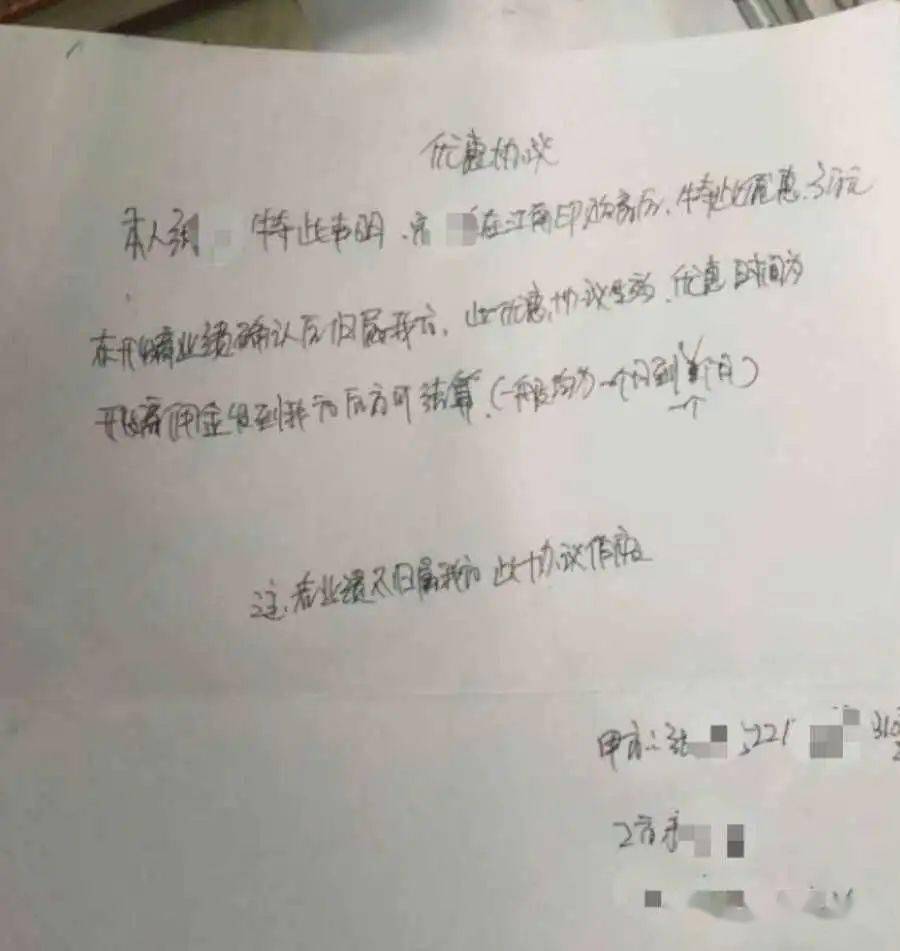 优惠协议
本人张 特此声明、宗 在江南印购房后,特此优惠3万元
在开发商业绩确认后归属我方,此优惠协议生效,优惠时间为
开发商佣金得到我方后方可结算,(一般均为一个月到 个月)
一个
注:若业绩不归属我方 此协议作废
甲方:张 221 310
乙方